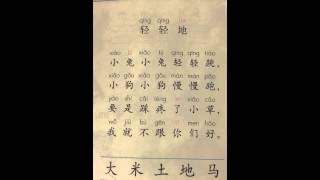 qīng qīng
轻轻地
xiǎo xiǎo tù qīng qīng tiào
小兔小兔轻轻跳，
xiǎo gǒu xiǎo gǒu màn màn pǎo
小狗小狗慢慢跑，
yào shì cǎi téng
要是踩疼了小草，
jiù bù gēn men hǎo
我就不跟你们好。
大米土地马